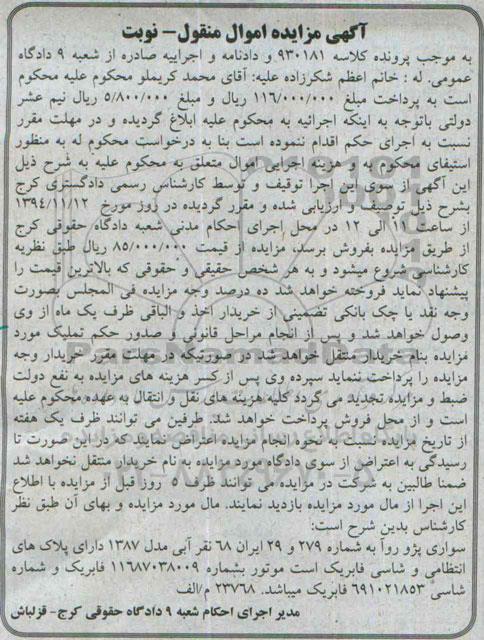 آگهی مزایده اموال منقول- نوبت
به موجب پرونده کلاسه ۹۳۰۱۸۱ و دادنامه و اجراییه صادره از شعبه ۹ دادگاه
عمومی. له : خانم اعظم شکرزاده علیه: آقای محمد کریملو محکوم علیه محکوم
است به پرداخت مبلغ ۱۱۶/۰۰۰/۰۰۰ ریال و مبلغ ۵/۸۰۰/۰۰۰ ریال نیم عشر
دولتی باتوجه به اینکه اجرائیه به محکوم علیه ابلاغ گردیده و در مهلت مقرر
نسبت به اجرای حکم اقدام ننموده است بنا به درخواست محکوم له به منظور
استیفای محکوم به و هزینه اجرایی اموال متعلق به محکوم علیه به شرح ذیل
این آگهی از سوی این اجرا توقیف و توسط کارشناس رسمی دادگستری کرج
بشرح ذیل توصیف و ارزیابی شده و مقرر گردیده در روز مورخ ۱۳۹۴/۱۱/۱۲
از ساعت ۱۱ الی ۱۲ در محل اجرای احکام مدنی شعبه دادگاه حقوقی کرج
از طریق مزایده بفروش برسد، مزایده از قیمت ۸۵/۰۰۰/۰۰۰ ریال طبق نظریه
کارشناسی شروع میشود و به هر شخص حقیقی و حقوقی که بالاترین قیمت را
پیشنهاد نماید فروخته خواهد شد ده درصد وجه مزایده فی المجلس بصورت
وجه نقد یا چک بانکی تضمینی از خریدار اخذ و الباقی ظرف یک ماه از وی
وصول خواهد شد و پس از انجام مراحل قانونی و صدور حکم تملیک مورد
مزایده بنام خریدار منتقل خواهد شد در صورتیکه در مهلت مقرر خریدار وجه
مزایده را پرداخت ننماید سپرده وی پس از کسر هزینه های مزایده به نفع دولت
ضبط و مزایده تجدید می گردد کلیه هزینه های نقل و انتقال به عهده محکوم علیه
است و از محل فروش پرداخت خواهد شد. طرفین می توانند ظرف یک هفته
از تاریخ مزایده نسبت به نحوه انجام مزایده اعتراض نمایند که در این صورت تا
رسیدگی به اعتراض از سوی دادگاه مورد مزایده به نام خریدار منتقل نخواهد شد
ضمنا طالبین به شرکت در مزایده می توانند ظرف ۵ روز قبل از مزایده با اطلاع
این اجرا از مال مورد مزایده بازدید نمایند. مال مورد مزایده و بهای آن طبق نظر
کارشناس بدین شرح است:
سواری پژو روآ به شماره ۲۷۹ و ۲۹ ایران ۶۸ نقر آبی مدل ۱۳۸۷ دارای پلاک های
انتظامی و شاسی فابریک است موتور بشماره ۱۱۶۸۷۰۳۸۰۰۹ فابریک و شماره
شاسی ۶۹۱۰۲۱۸۵۳ فابریک میباشد. ۲۳۷۶۸ م/الف
مدیر اجرای احکام شعبه ۹ دادگاه حقوقی کرج- قزلباش